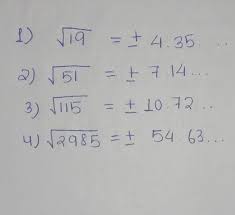 1) √19 = ± 4.35...
2) √51 = ± 7.14...
3) √115 = ± 10.72..
4) √2985 = ± 54.63...